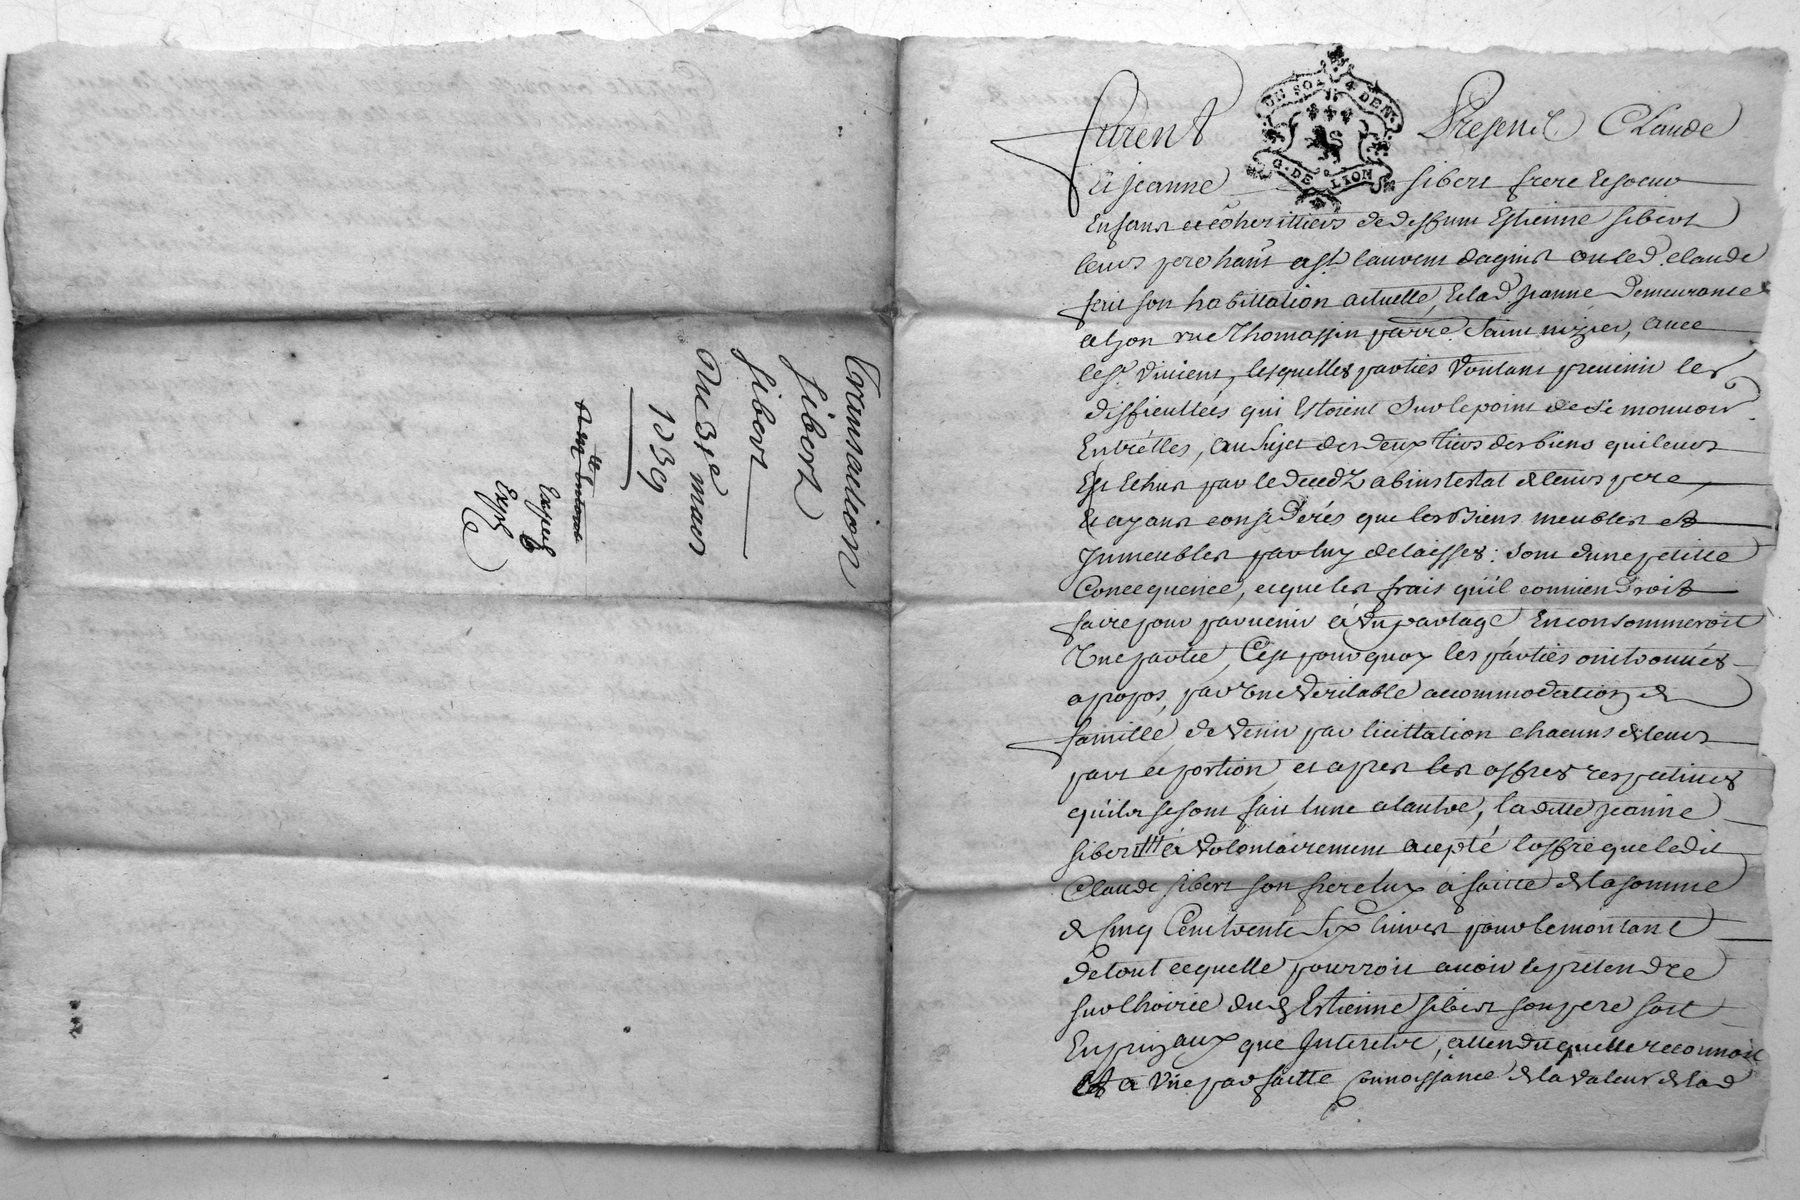 Transaction
Sibert
Sibert
Du 31e mars
1739
Exped
Expé
UN SOL 4 DEN.
G. DE LION
furent Presents Claude
et jeanne Sibert frere et soeur
Enfans et coheritiers de deffunt Estienne Sibert
leurs pere hant a St. laurent dagnis ou led. claude
fait son habittation actuelle, et lad. jeanne demeurante
a lyon rue Thomassin parre. Saint nizier, avec
le Sr. lesquelles parties voulant prevenir les
difficultées qui Estoient sur le point de se mouvoir
Entrelles, au sujet des deux tiers des biens qui leurs
Est Echus par le decedz abinstestat de leurs pere,
Et ayant considerés que les Biens meubles et
Jmmeubles par luy delaisses: sont dune petitte
Concequence, et que les frais qu'il conviendroit
faire pour parvenir a un partage En consommeroit
Une partie, C'est pourquoy les parties ont trouvés
apropos, par une veritable accommodation de
famille de venir par licittation chacuns de leurs
part et portion et apres les offres respectives
quils se sont fait lune a lautre, la ditte jeanne
Sibert a volontairement accepté l'offre que ledit
Claude Sibert son frere luy a faitte de la somme
de Cinq Cent trente Six livres pour le montant
de tout ce quelle pourroit avoir et pretendre
sur lhoirie dud. Estienne Sibert son pere soit
En principaux que Jnterets, attendu quelle reconnoit
Et a Une parfaitte connoissance de la valeur de lad